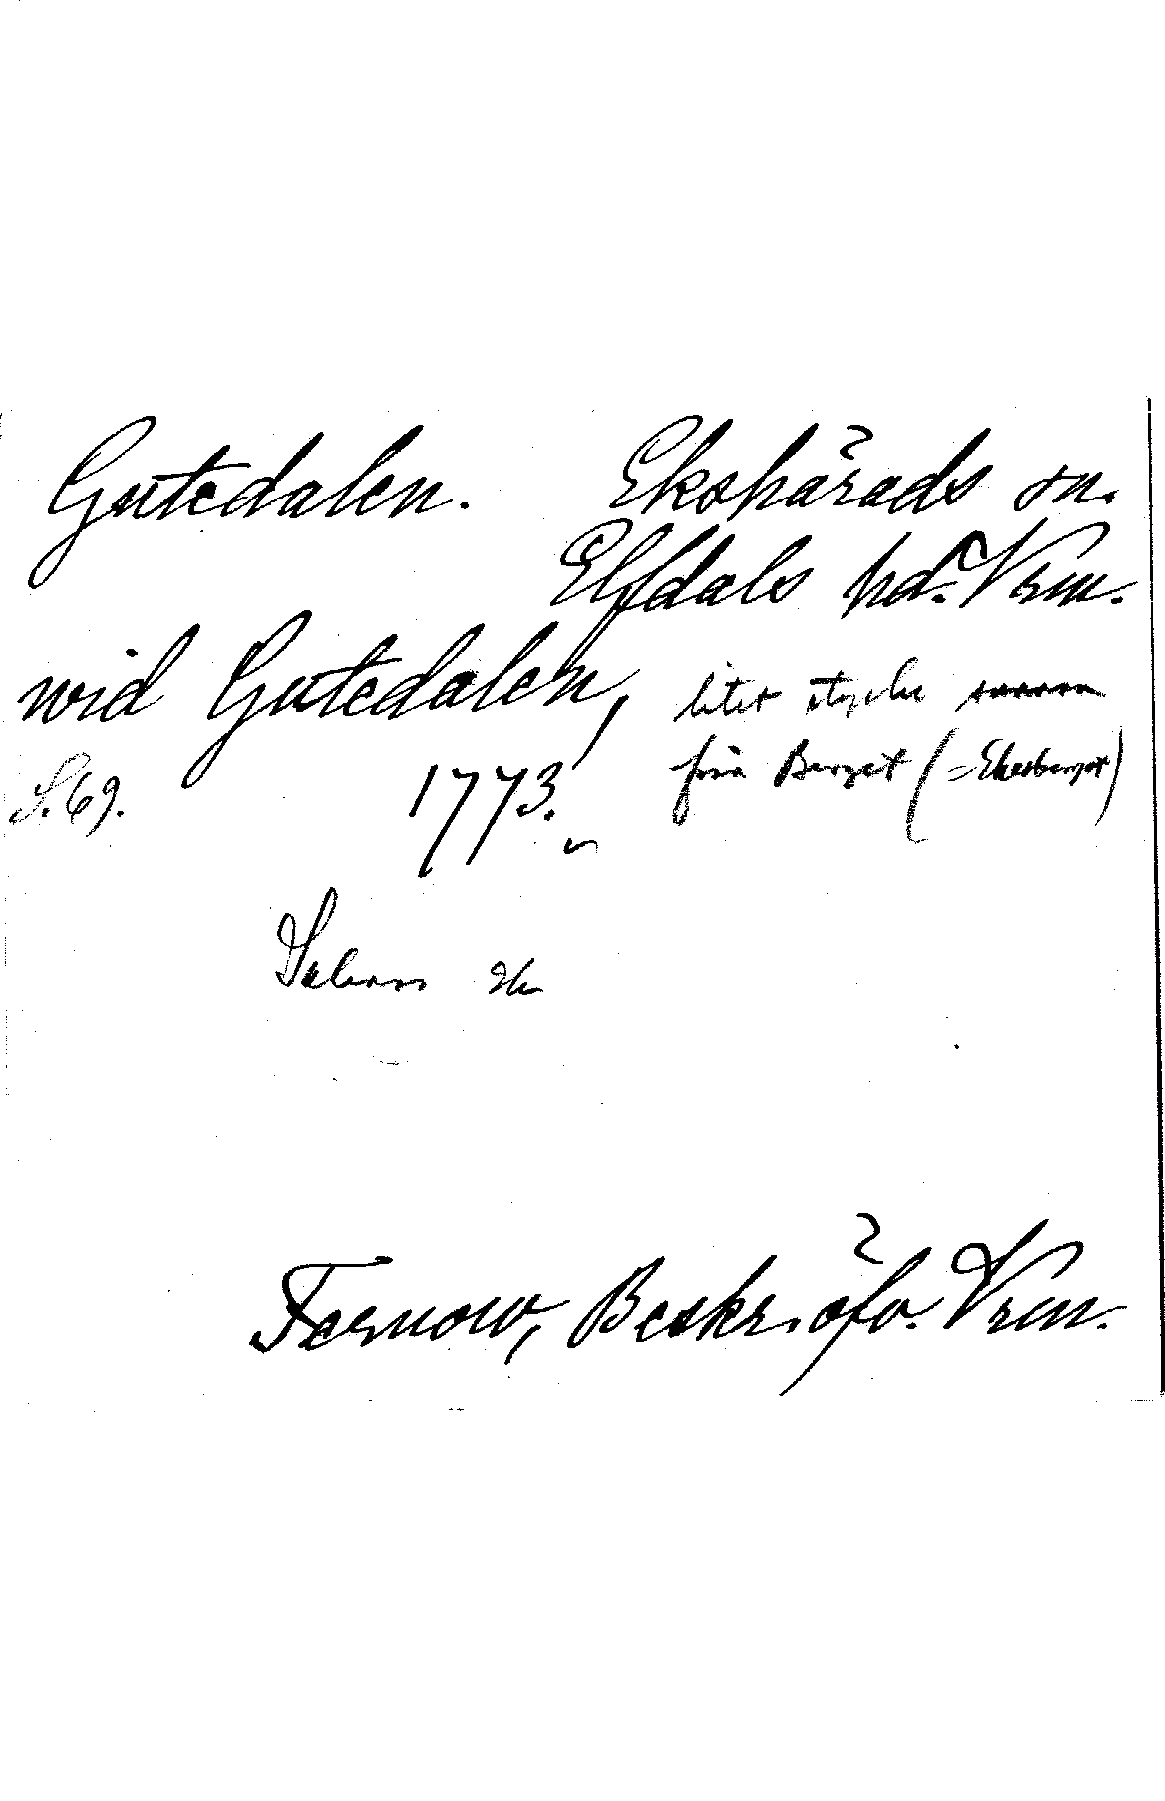 Gutedalen. Ekshärads sn.
Elfdals hd. Vrm.
wid Gutedalen, litet stycke
från Berget (= Ekesberget)
S. 69. 1773.
Saknas
Fernow, Beskr. öfv. Vrm.